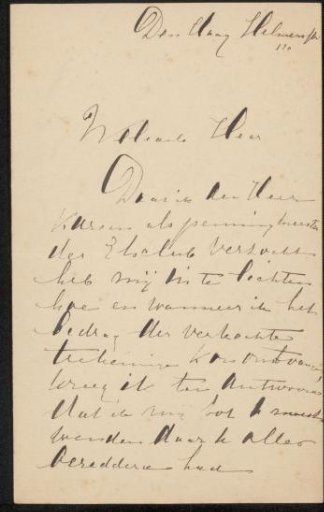 Den Haag Helmerstr
WelEdele Heer
Daar ik den Heer
Karsen als penningmeester
der Etsclub verzocht
heb mij in te lichten
hoe en wanneer ik het
bedrag der verkochte
teekening kon ontvangen
kreeg ik ten antwoord
dat ik mij tot U moest
wenden daar U alles
beredderd had